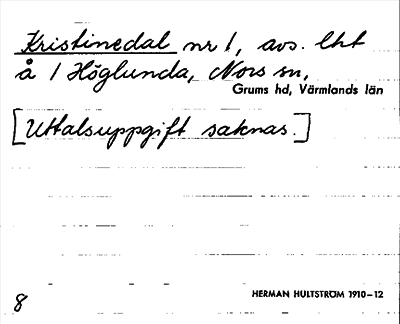 Kristinedal nr 1, avs. lht
å 1 Höglunda, Nors sn,
Grums hd, Värmlands län
[Uttalsuppgift saknas.]
HERMAN HULTSTRÖM 1910-12
8